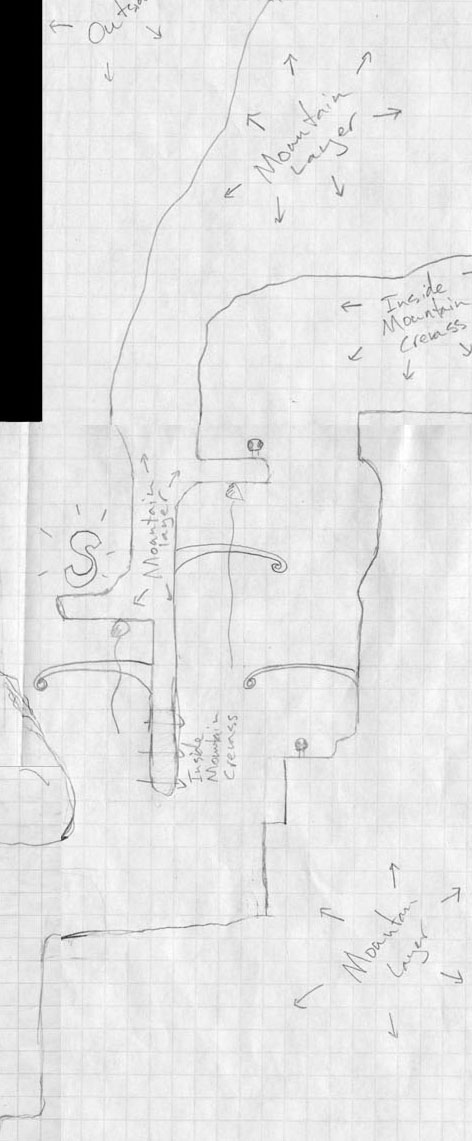 Mountain
Layer
Inside
Mountain
Crevass
Mountain
layer
S
Inside
Mountain
Crevass
Mountain
Layer